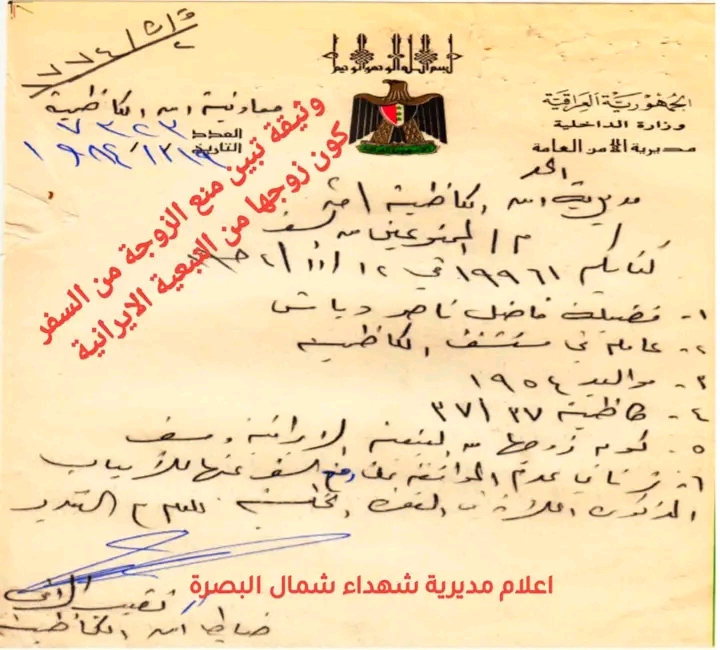 بسم الله الرحمن الرحيم
الجمهورية العراقية
وزارة الداخلية
مديرية الأمن العامة
معاونية امن الكاظمية
العدد ٧٣٢٣
التاريخ
وثيقة تبين منع الزوجة من السفر
كون زوجها من التبعية الايرانية
الى
مديرية امن الكاظمية
م / الممنوعين من السفر
كتابكم ١٩٩٦١ في ١٢ / ١١ /
١- فضيلة فاضل ناصر
٢- عاملة في مستشفى الكاظمية
٣- مواليد ١٩٥٤
٤- كاظمية ٣٧ / ٣٧
٥- كون زوجها من التبعية الايرانية
٦- عدم الموافقة على رفع السفر عنها للأسباب
المذكورة اعلاه في الفقرة الخامسة للعلم مع التقدير
نقيب الامن
ضابط امن الكاظمية
اعلام مديرية شهداء شمال البصرة